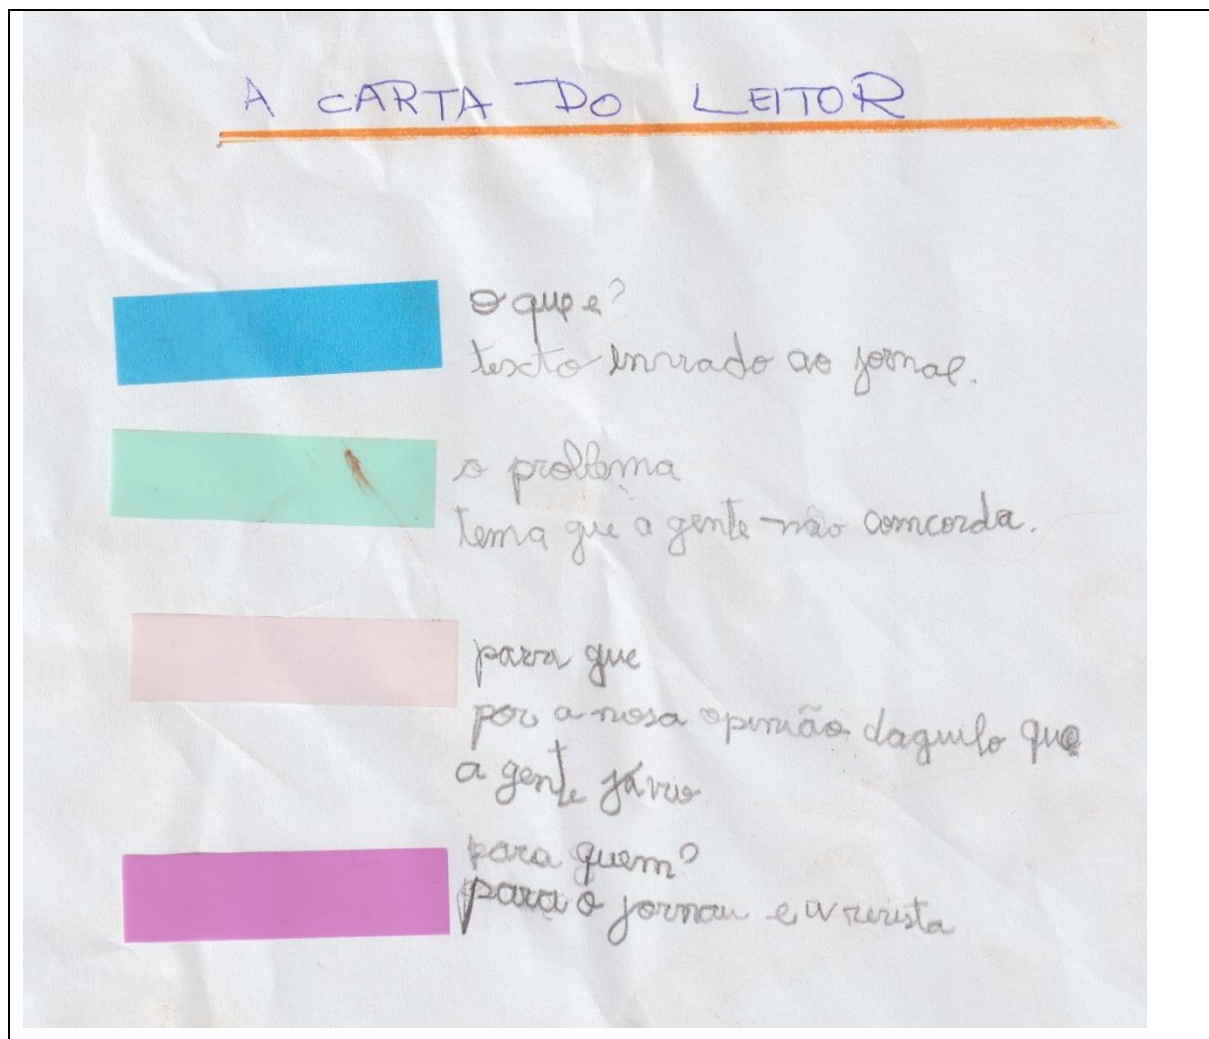 A CARTA DO LEITOR
o que e?
texto enviado ao jornal.
o problema
tema que a gente não comcorda.
para que
por a nosa opinião daquilo que
a gente já viu
para quem?
para o jornau e a revista